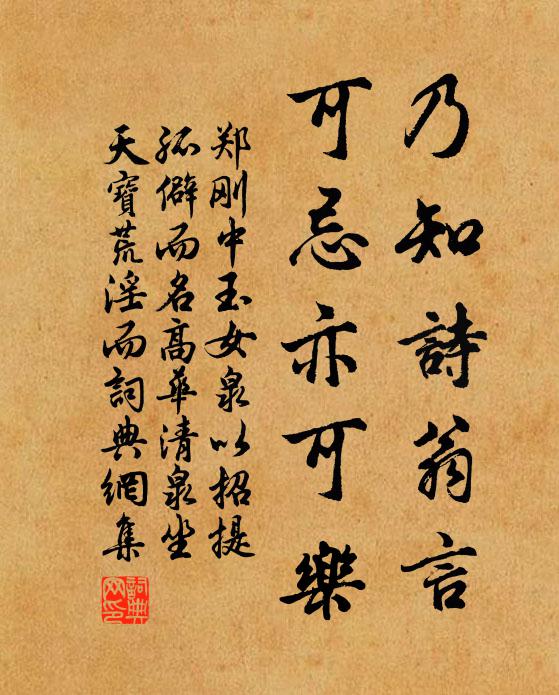 乃知詩翁言
可忌亦可樂
郑刚中玉女泉以招提
孤僻而名高華清泉坐
天寶荒淫而詞典網集
詞典
网印